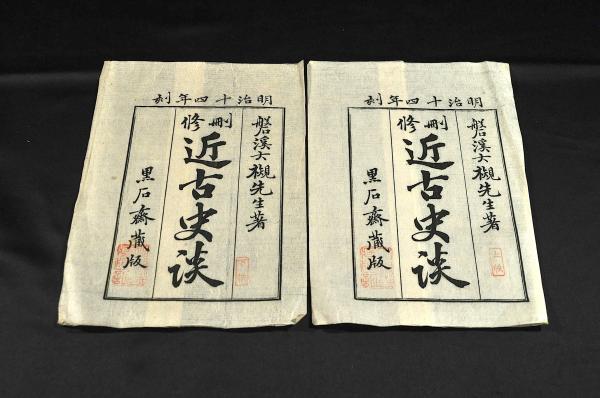 明治十四年刻
磐溪大槻先生著
刪修
近古史談
黒石齋藏版
明治十四年刻
磐溪大槻先生著
刪修
近古史談
黒石齋藏版